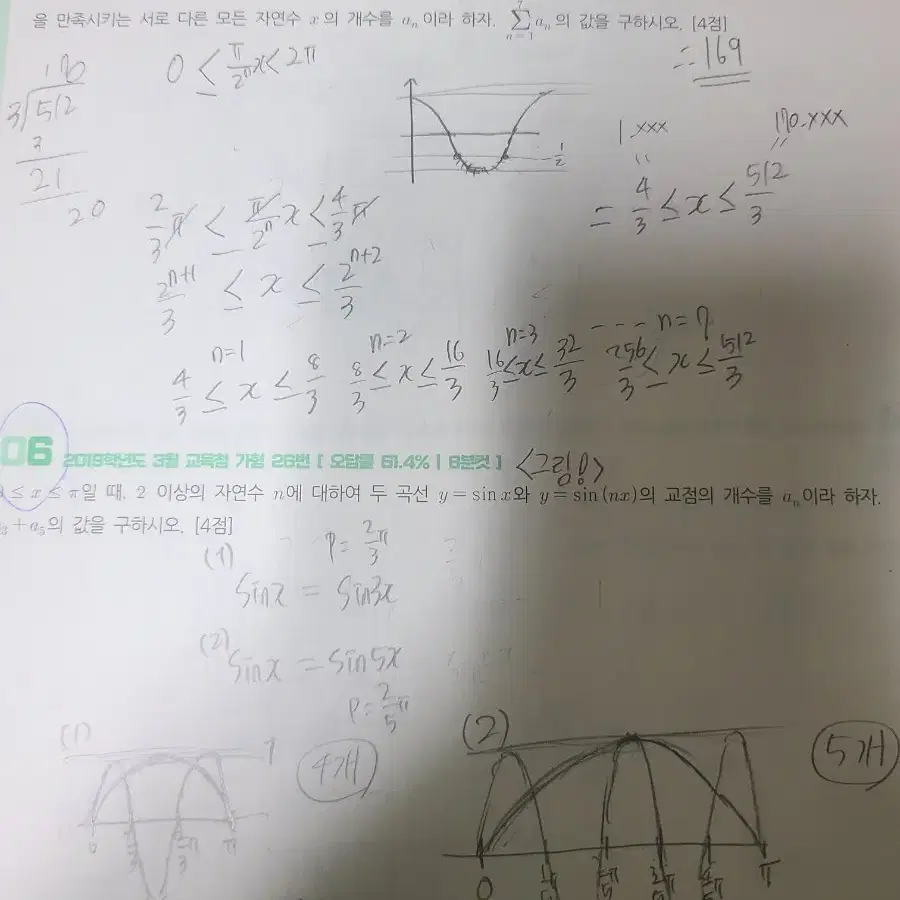 을 만족시키는 서로 다른 모든 자연수 x의 개수를 aₙ이라 하자. ∑ₙ₌₁⁷ aₙ의 값을 구하시오. [4점]
∴ 169
170
3)512
3
21
20
0 ≤ π/2ⁿ x < 2π
-1/2
1.xxx
170.xxx
= 4/3 ≤ x ≤ 512/3
2/3 π ≤ π/2ⁿ x ≤ 4/3 π
2ⁿ⁺¹/3 ≤ x ≤ 2ⁿ⁺²/3
n=1 n=2 n=3 --- n=7
4/3 ≤ x ≤ 8/3 8/3 ≤ x ≤ 16/3 16/3 ≤ x ≤ 32/3 256/3 ≤ x ≤ 512/3
06 2019학년도 3월 교육청 가형 26번 [ 오답률 61.4% | 6분컷 ] <그림!>
≤ x ≤ π일 때, 2 이상의 자연수 n에 대하여 두 곡선 y = sin x와 y = sin (nx)의 교점의 개수를 aₙ이라 하자.
+ a₅의 값을 구하시오. [4점]
(1) P = 2/3 π
sinx = sin3x
(2) sinx = sin5x
P = 2/5 π
(1) 1 4개 (2) 5개
0 1/3 2/3 π 0 1/5π 2/5π 3/5π 4/5π π